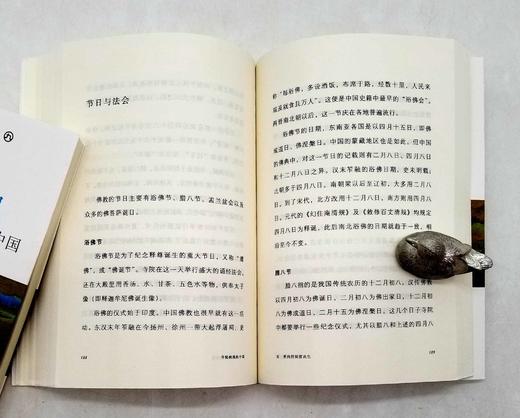 中国
节日与法会
佛教的节日主要有浴佛节、腊八节、盂兰盆会以及
众多的佛菩萨诞日。
浴佛节
浴佛节是为了纪念释尊诞生的重大节日，又称“灌
佛”，或“佛诞节”。寺院在这一天举行盛大的诵经法会，
还在大殿里用香汤、水、甘茶、五色水等物，供奉太子
像（即释迦牟尼佛诞生像）。
浴佛的仪式始于印度，中国佛教也很早就有这一活
动。东汉末年笮融在今扬州、徐州一带大起浮屠祠，史
188
称“每浴佛，多设酒饭，布席于路，经数十里，人民来
观及就食且万人”。这便是中国史籍中最早的“浴佛会”。
两晋南北朝以后，这一节庆在各地普遍流行。
浴佛节的日期，东南亚各国是以四月十五日，即佛
成道日、佛涅槃日。中国的蒙藏地区也是如此。但中国
的佛典中，对这一节日的记载则有二月八日、四月八日
和十二月八日之异。汉末笮融的浴佛日期，史未明载；
北朝多于四月八日。南朝梁以后至辽初，大多用二月八
日。到了宋代，北方改用十二月八日，南方则用四月八
日。元代的《幻住庵清规》及《敕修百丈清规》均规定
四月八日为释诞，此后南北浴佛的日期就趋于一致，相
沿至今不变。
腊八节
腊八指的是我国传统农历的十二月初八。汉传佛教
以四月初八为佛诞日，二月初八为佛出家日，十二月初
八为佛成道日，二月十五为佛涅槃日。这几个日子寺院
中都要举行一些纪念仪式，尤其以腊八和上述的四月八
189